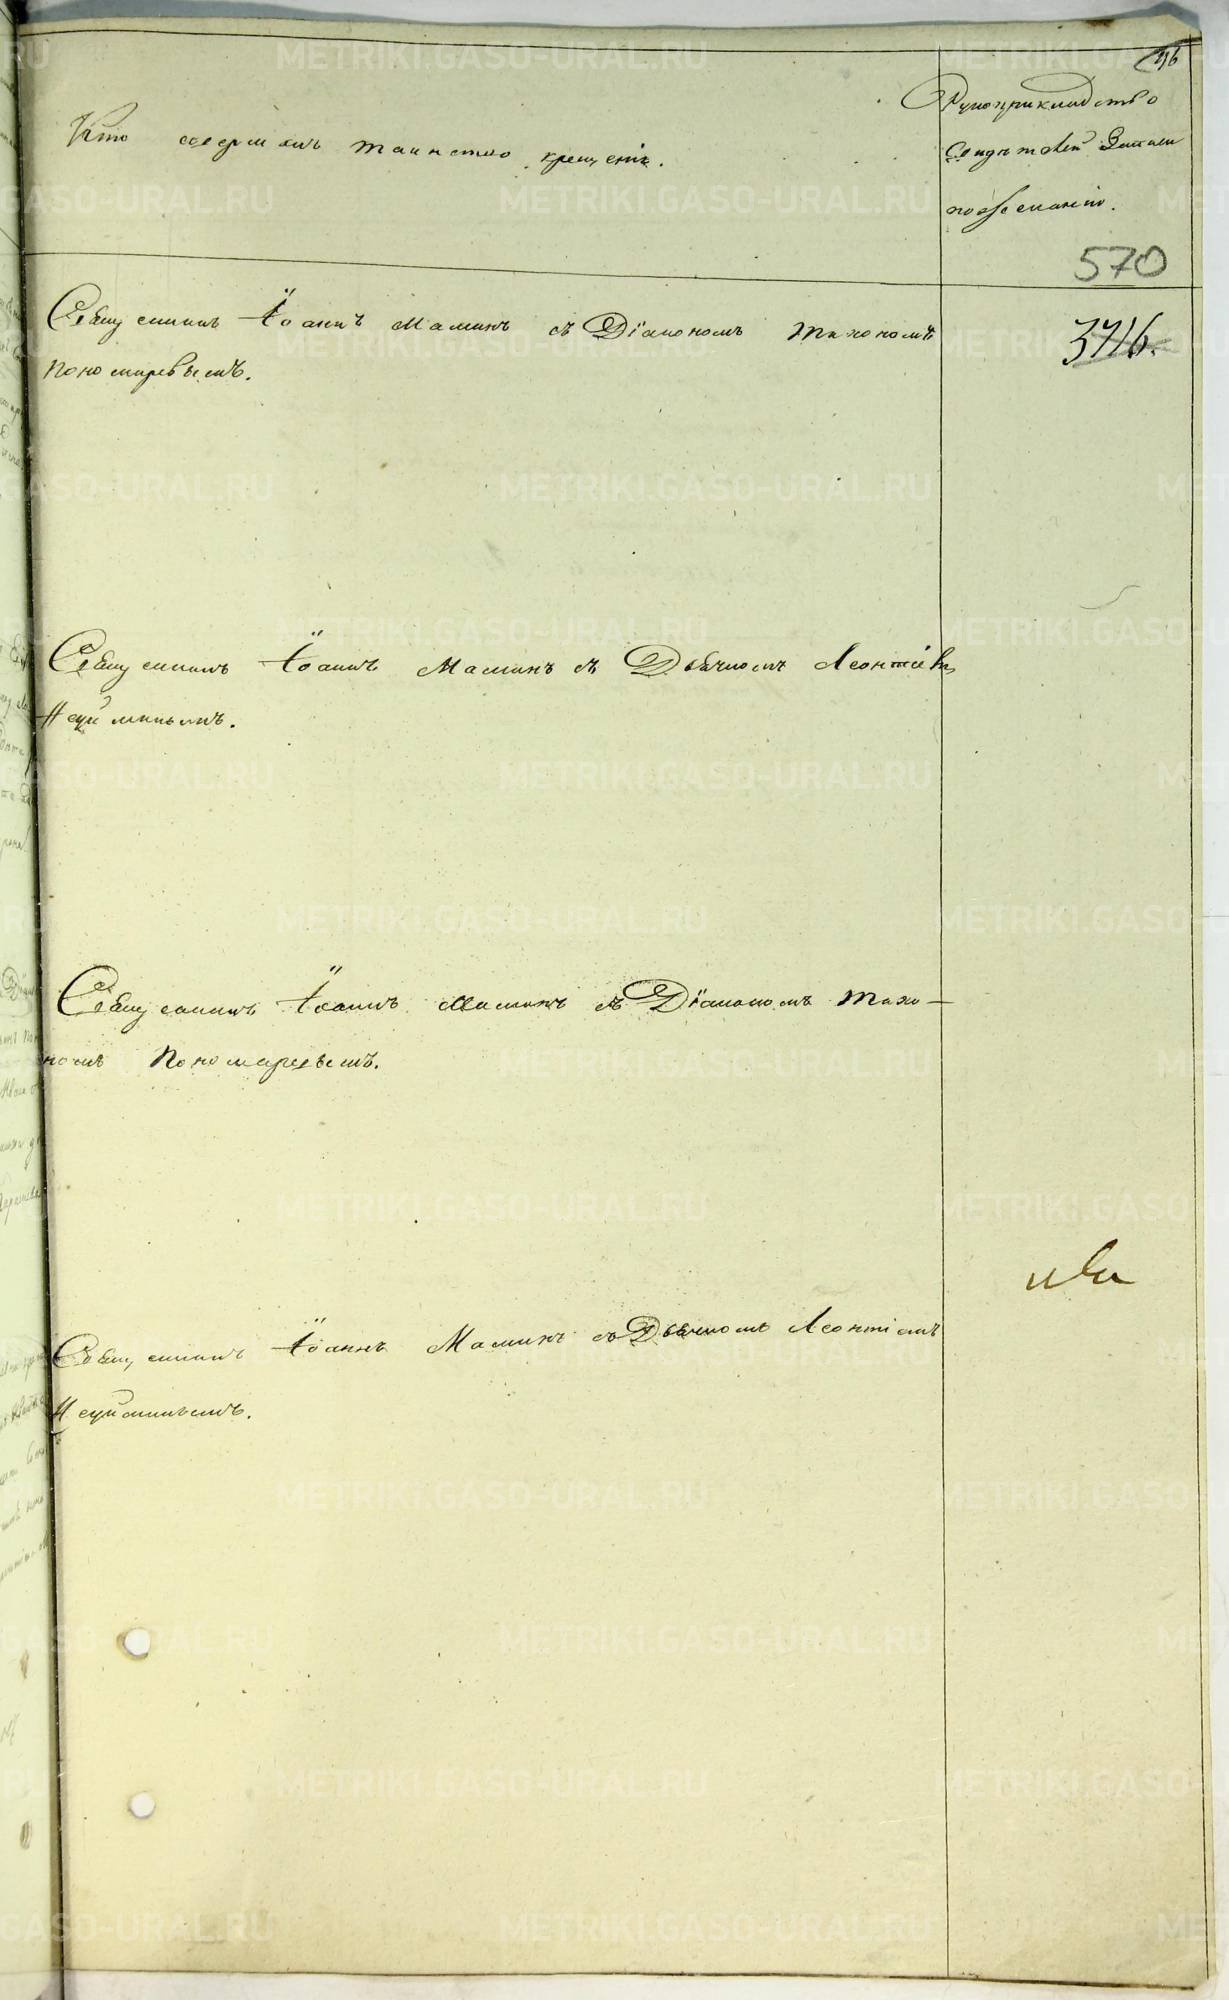 46
Кто совершалъ таинство крещенія.
Рукоприкладство
Свидѣтелей Записи
по желанію.
570
Священникъ Іоаннъ Маминъ съ Діакономъ Тихономъ
Пономаревымъ.
Священникъ Іоаннъ Маминъ съ Дьячкомъ Леонтіемъ
Неуйминымъ.
Священникъ Іоаннъ Маминъ съ Діакономъ Тихо-
номъ Пономаревымъ.
Священникъ Іоаннъ Маминъ съ Дьячкомъ Леонтіемъ
Неуйминымъ.